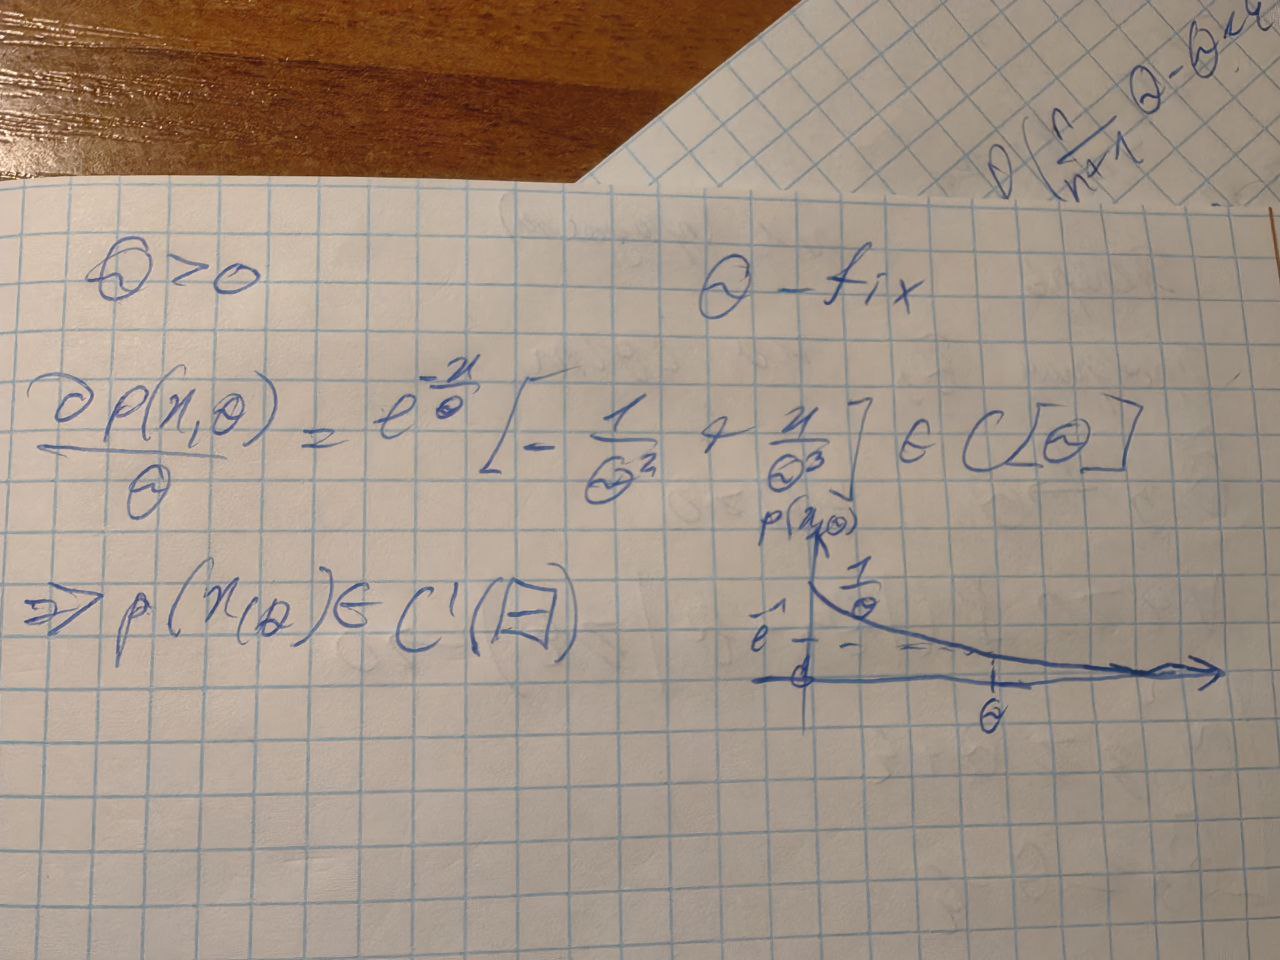 D(n/(n+1) Θ - Θ < ε
Θ > 0
Θ - fix
∂p(x,θ)/Θ = e^(-x/θ) [- 1/Θ² + x/Θ³] ∈ C[Θ]
⇒ p(x,θ) ∈ C'(Θ)
p(x,θ)
1/θ
e⁻¹
0
Θ